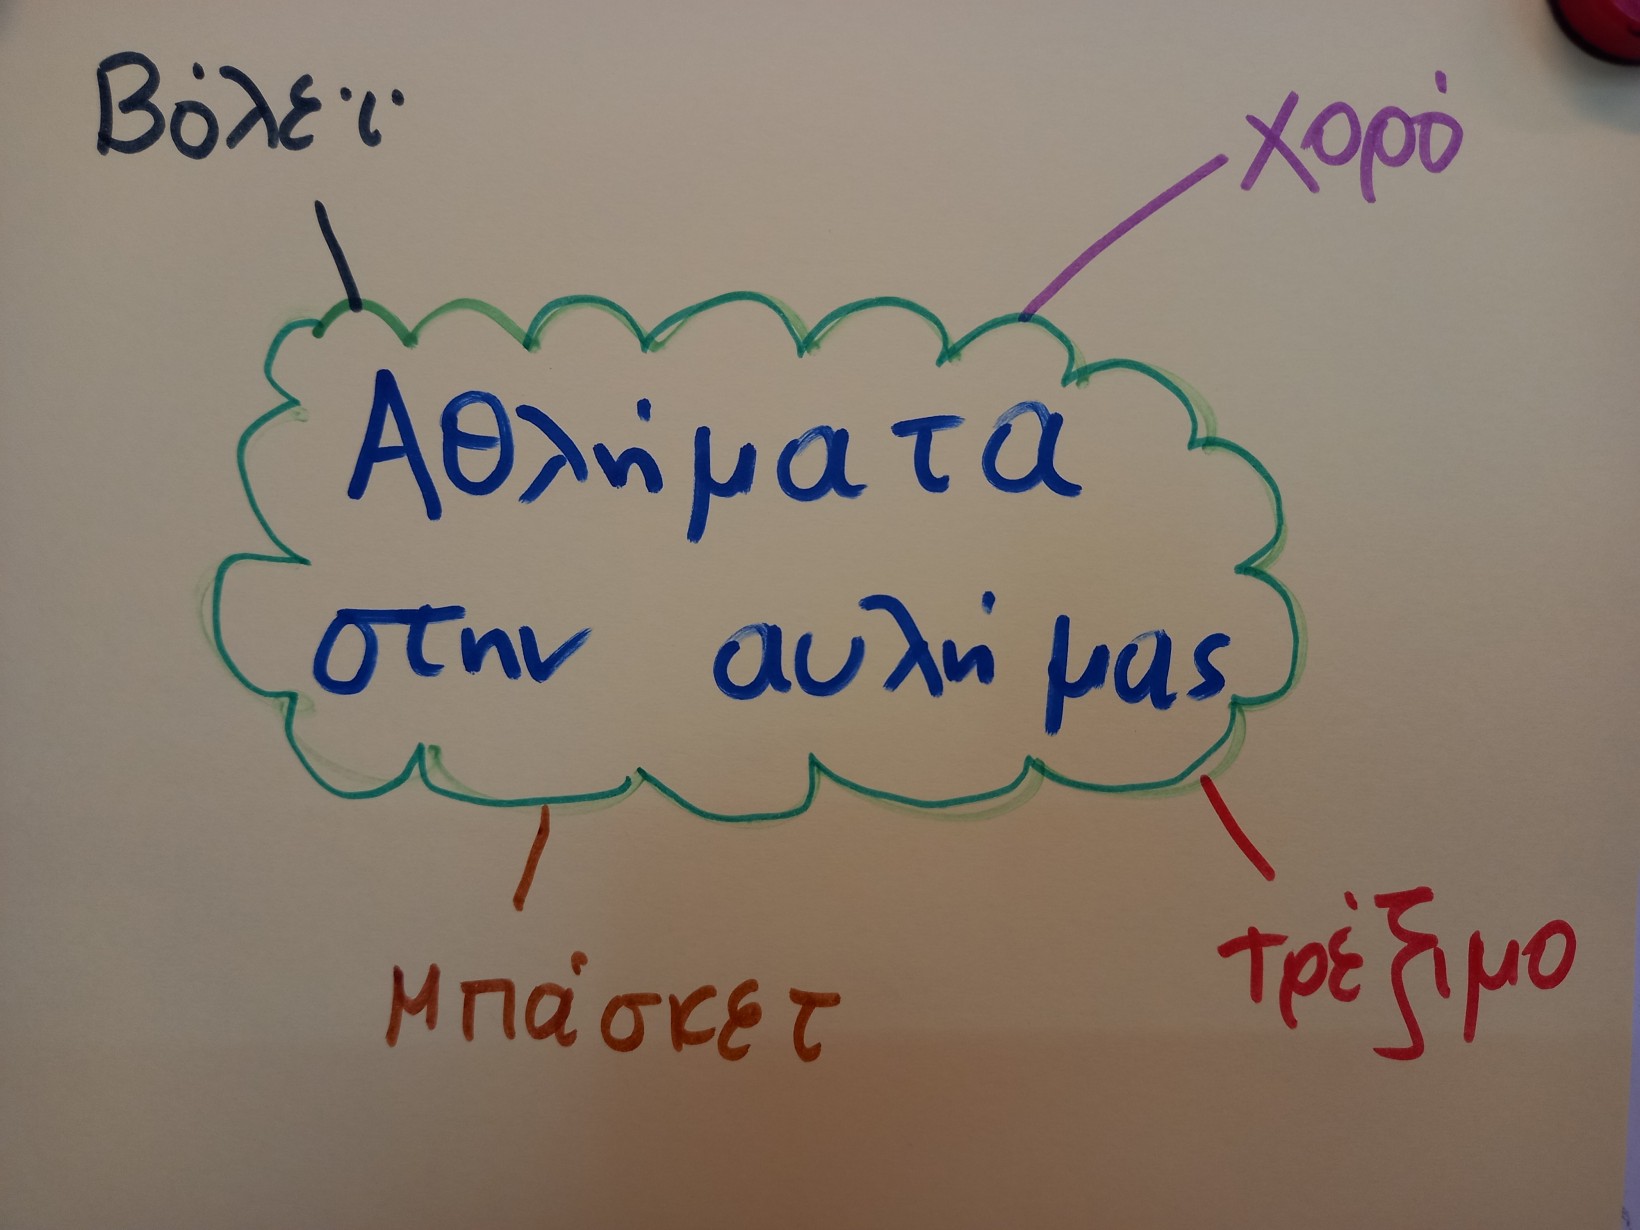 Βόλεϊ
χορό
Αθλήματα
στην αυλή μας
μπάσκετ
τρέξιμο